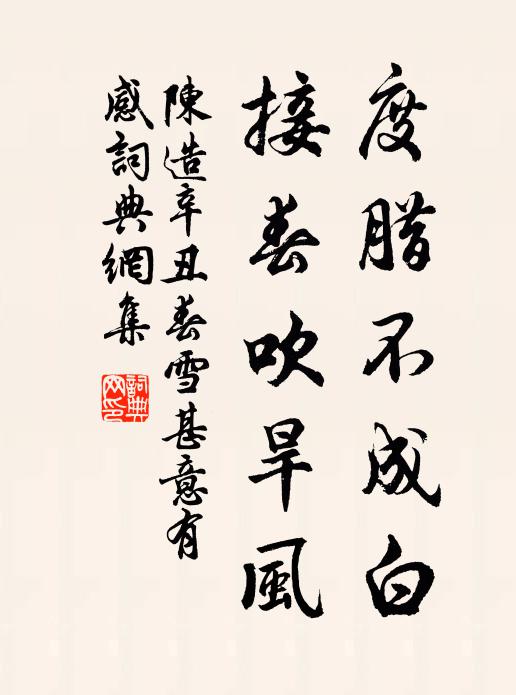 度腊不成白
接春吹旱風
陳造辛丑春雪甚意有
感詞典網集
詞典
网印